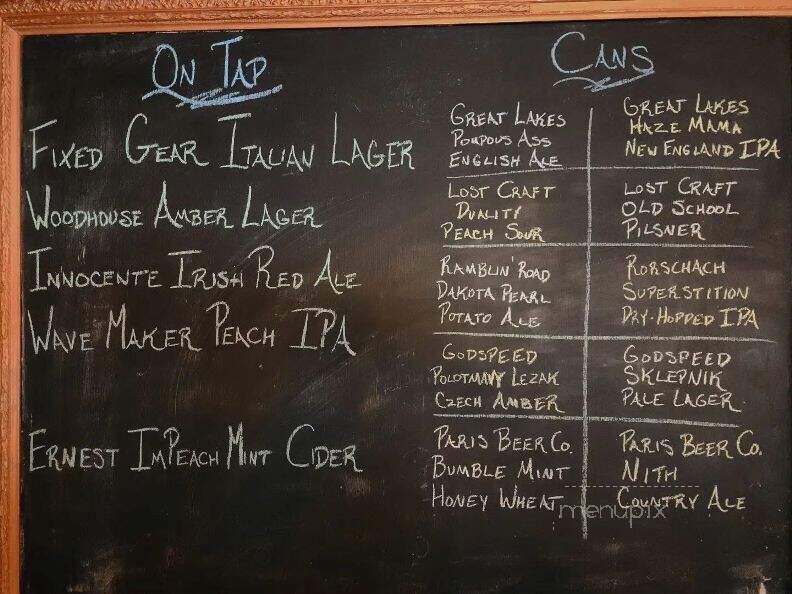 ON TAP
FIXED GEAR ITALIAN LAGER
WOODHOUSE AMBER LAGER
INNOCENTE IRISH RED ALE
WAVE MAKER PEACH IPA
ERNEST IMPEACH MINT CIDER
CANS
GREAT LAKES
POMPOUS ASS
ENGLISH ALE
GREAT LAKES
HAZE MAMA
NEW ENGLAND IPA
LOST CRAFT
DUALITY
PEACH SOUR
LOST CRAFT
OLD SCHOOL
PILSNER
RAMBLIN' ROAD
DAKOTA PEARL
POTATO ALE
RORSCHACH
SUPERSTITION
DRY-HOPPED IPA
GODSPEED
POLOTMAVY LEZAK
CZECH AMBER
GODSPEED
SKLEPNIK
PALE LAGER
PARIS BEER CO.
BUMBLE MINT
HONEY WHEAT
PARIS BEER CO.
NITH
COUNTRY ALE
menupix